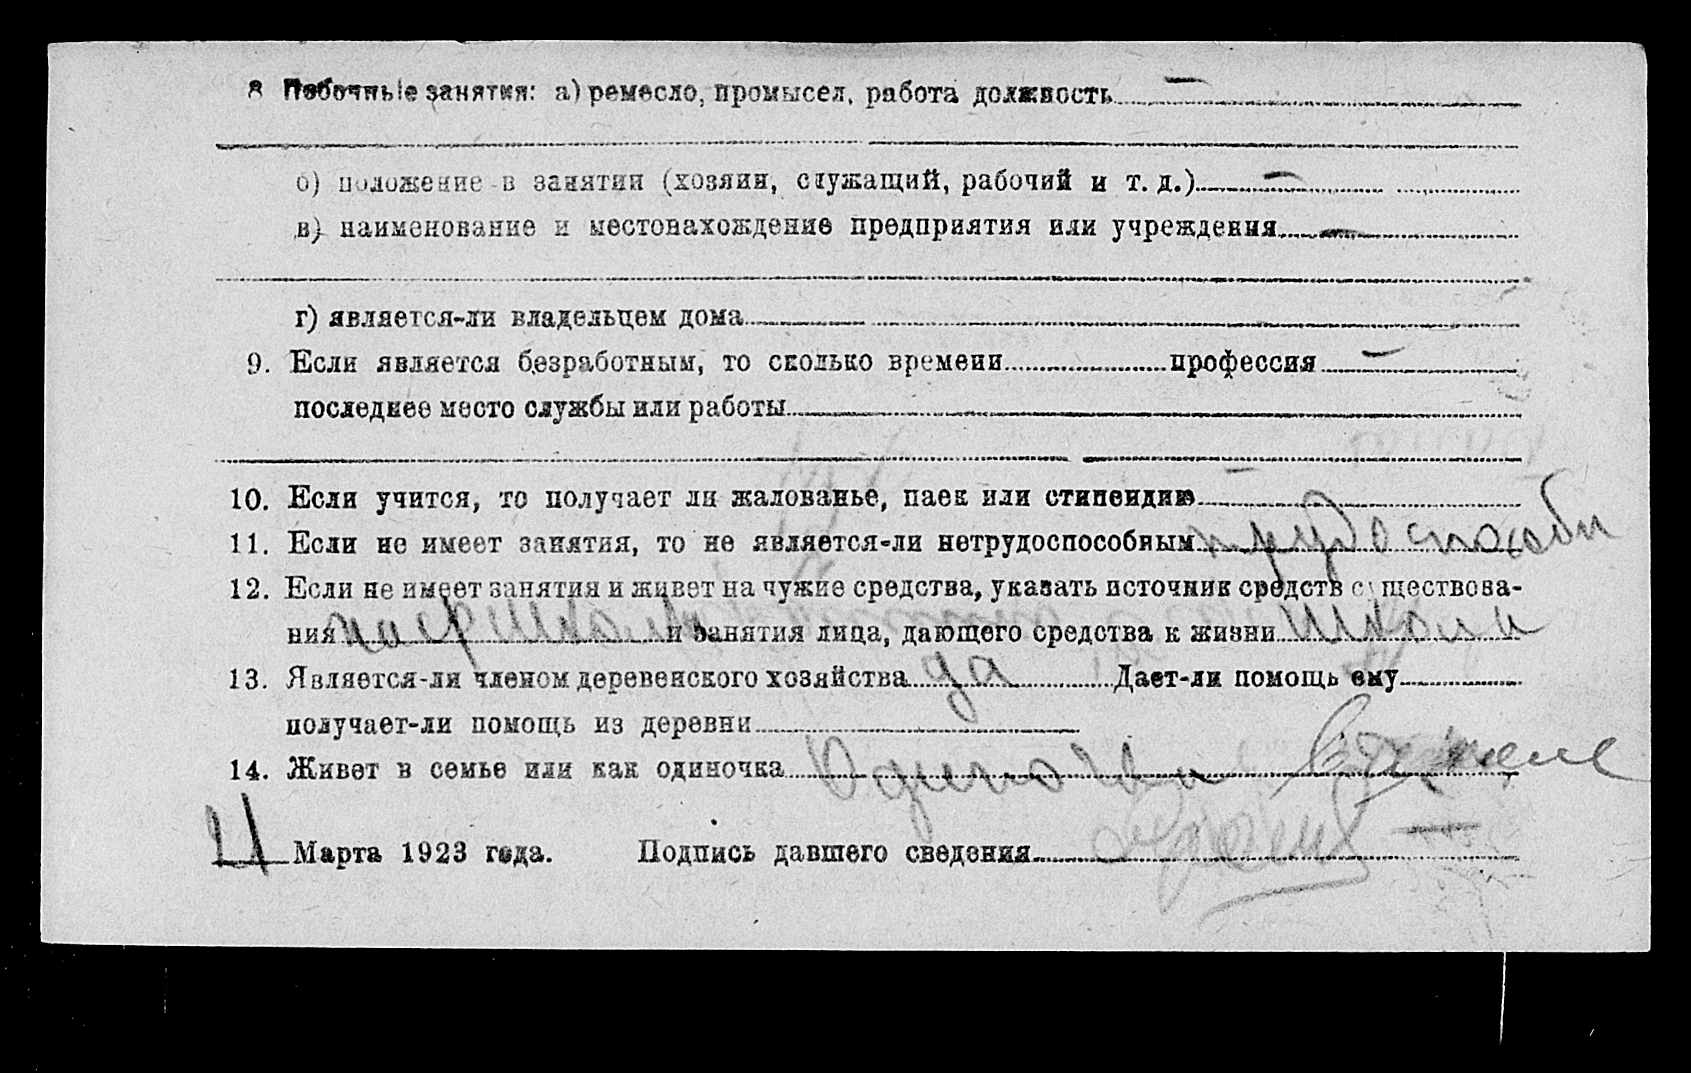 8 Побочные занятия: а) ремесло, промысел, работа должность —
б) положение в занятии (хозяин, служащий, рабочий и т. д.) —
в) наименование и местонахождение предприятия или учреждения —
г) является-ли владельцем дома
9. Если является безработным, то сколько времени профессия —
последнее место службы или работы
10. Если учится, то получает ли жалованье, паек или стипендию —
11. Если не имеет занятия, то не является-ли нетрудоспособным трудоспособн
12. Если не имеет занятия и живет на чужие средства, указать источник средств существова-
ния и занятия лица, дающего средства к жизни школы
13. Является-ли членом деревенского хозяйства да Дает-ли помощь ему
получает-ли помощь из деревни
14. Живет в семье или как одиночка
Марта 1923 года. Подпись давшего сведения